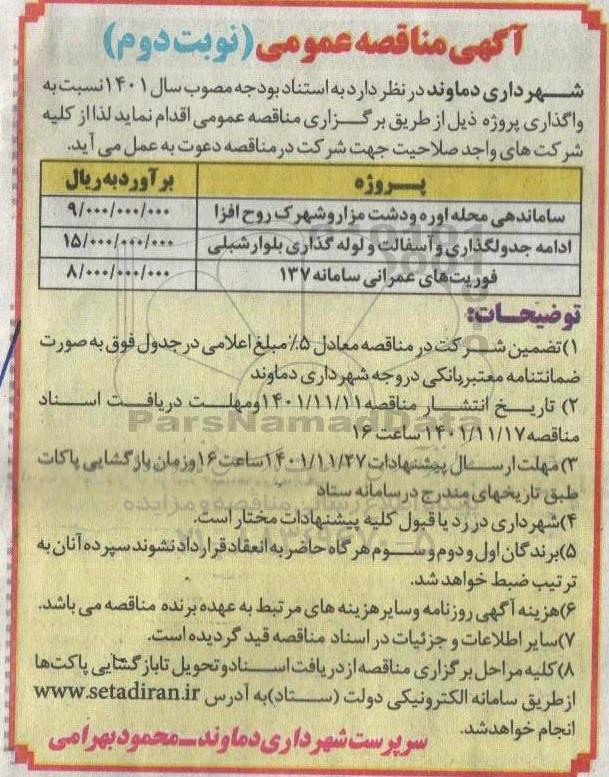 آگهی مناقصه عمومی (نوبت دوم)
شهرداری دماوند در نظر دارد به استناد بودجه مصوب سال ۱۴۰۱ نسبت به
واگذاری پروژه ذیل از طریق برگزاری مناقصه عمومی اقدام نماید لذا از کلیه
شرکت های واجد صلاحیت جهت شرکت در مناقصه دعوت به عمل می آید.
پروژه برآورد به ریال
ساماندهی محله اوره ودشت مزار وشهرک روح افزا ۹/۰۰۰/۰۰۰/۰۰۰
ادامه جدولگذاری و آسفالت و لوله گذاری بلوار شبلی ۱۵/۰۰۰/۰۰۰/۰۰۰
فوریت‌های عمرانی سامانه ۱۳۷ ۸/۰۰۰/۰۰۰/۰۰۰
توضیحات:
۱) تضمین شرکت در مناقصه معادل ۵٪ مبلغ اعلامی در جدول فوق به صورت
ضمانتنامه معتبر بانکی در وجه شهرداری دماوند
۲) تاریخ انتشار مناقصه ۱۴۰۱/۱۱/۱۱ ومهلت دریافت اسناد
مناقصه ۱۴۰۱/۱۱/۱۷ ساعت ۱۶
۳) مهلت ارسال پیشنهادات ۱۴۰۱/۱۱/۲۷ ساعت ۱۶ وزمان بازگشایی پاکات
طبق تاریخهای مندرج در سامانه ستاد
۴) شهرداری در رد یا قبول کلیه پیشنهادات مختار است.
۵) برندگان اول و دوم و سوم هرگاه حاضر به انعقاد قرارداد نشوند سپرده آنان به
ترتیب ضبط خواهد شد.
۶) هزینه آگهی روزنامه وسایر هزینه های مرتبط به عهده برنده مناقصه می باشد.
۷) سایر اطلاعات و جزئیات در اسناد مناقصه قید گردیده است.
۸) کلیه مراحل برگزاری مناقصه از دریافت اسناد و تحویل تا بازگشایی پاکت‌ها
از طریق سامانه الکترونیکی دولت (ستاد) به آدرس www.setadiran.ir
انجام خواهد شد.
سرپرست شهرداری دماوند ـ محمود بهرامی
ParsNamadData